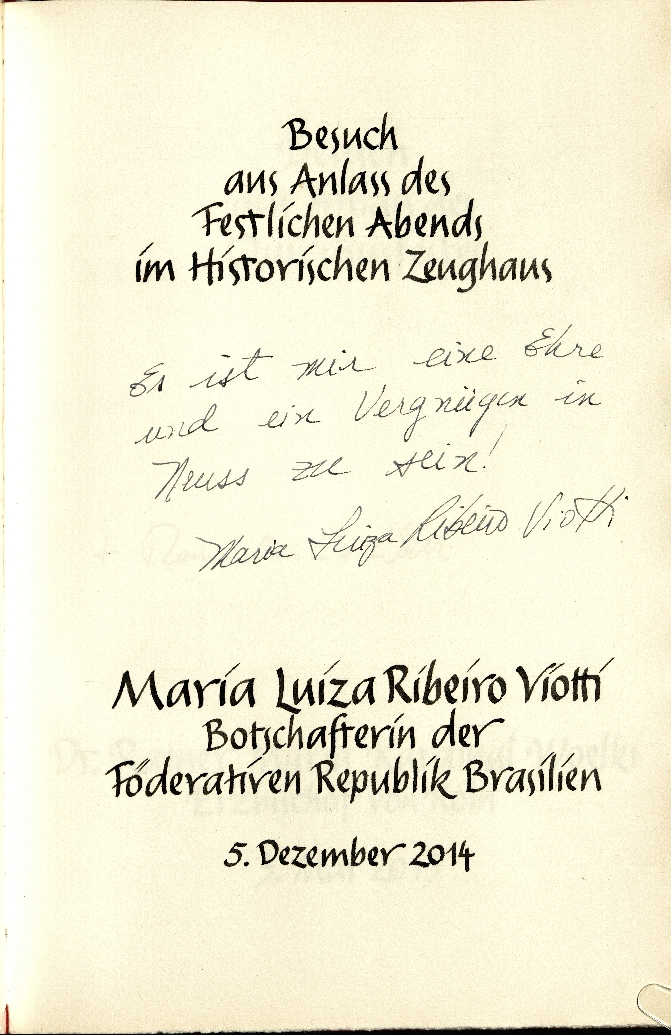 Besuch
aus Anlass des
Festlichen Abends
im Historischen Zeughaus
Es ist mir eine Ehre
und ein Vergnügen in
Neuss zu sein!
Maria Luiza Ribeiro Viotti
Maria Luiza Ribeiro Viotti
Botschafterin der
Föderativen Republik Brasilien
5. Dezember 2014